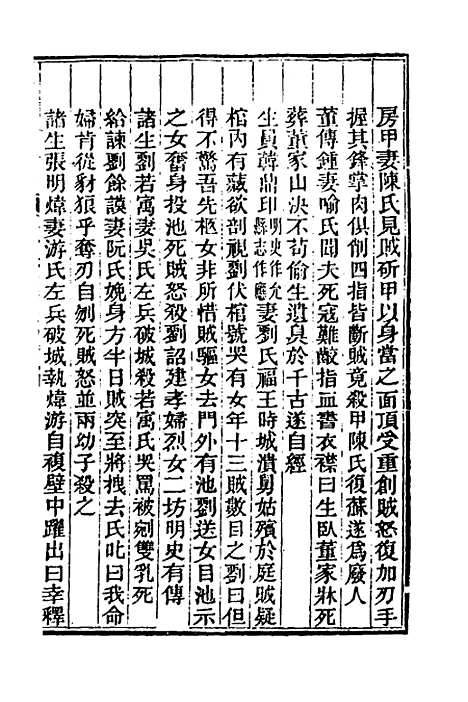 房甲妻陳氏見賊斫甲以身當之面頂受重創賊怒復加刃手
握其鋒掌肉俱創四指皆斷賊竟殺甲陳氏復蘇遂爲廢人
董傳鍾妻喻氏聞夫死冦難敵指血書衣襟曰生臥董家牀死
葬董家山决不苟偷生遺臭於千古遂自經
生員韓鼎印明史作允縣志作應妻劉氏福王時城潰舅姑殯於庭賊疑
棺内有藏欲剖視劉伏棺號哭有女年十三賊數目之劉曰但
得不驚吾先柩女非所惜賊驅女去門外有池劉送女目池示
之女奮身投池死賊怒殺劉詔建孝婦烈女二坊明史有傳
諸生劉若寓妻吳氏左兵破城殺若寓氏哭罵被剜雙乳死
給諫劉餘謨妻阮氏娩身方半日賊突至將拽去氏叱曰我命
婦肯從豺狼乎奪刃自刎死賊怒並兩幼子殺之
諸生張明煒妻游氏左兵破城執煒游自複壁中躍出曰幸釋